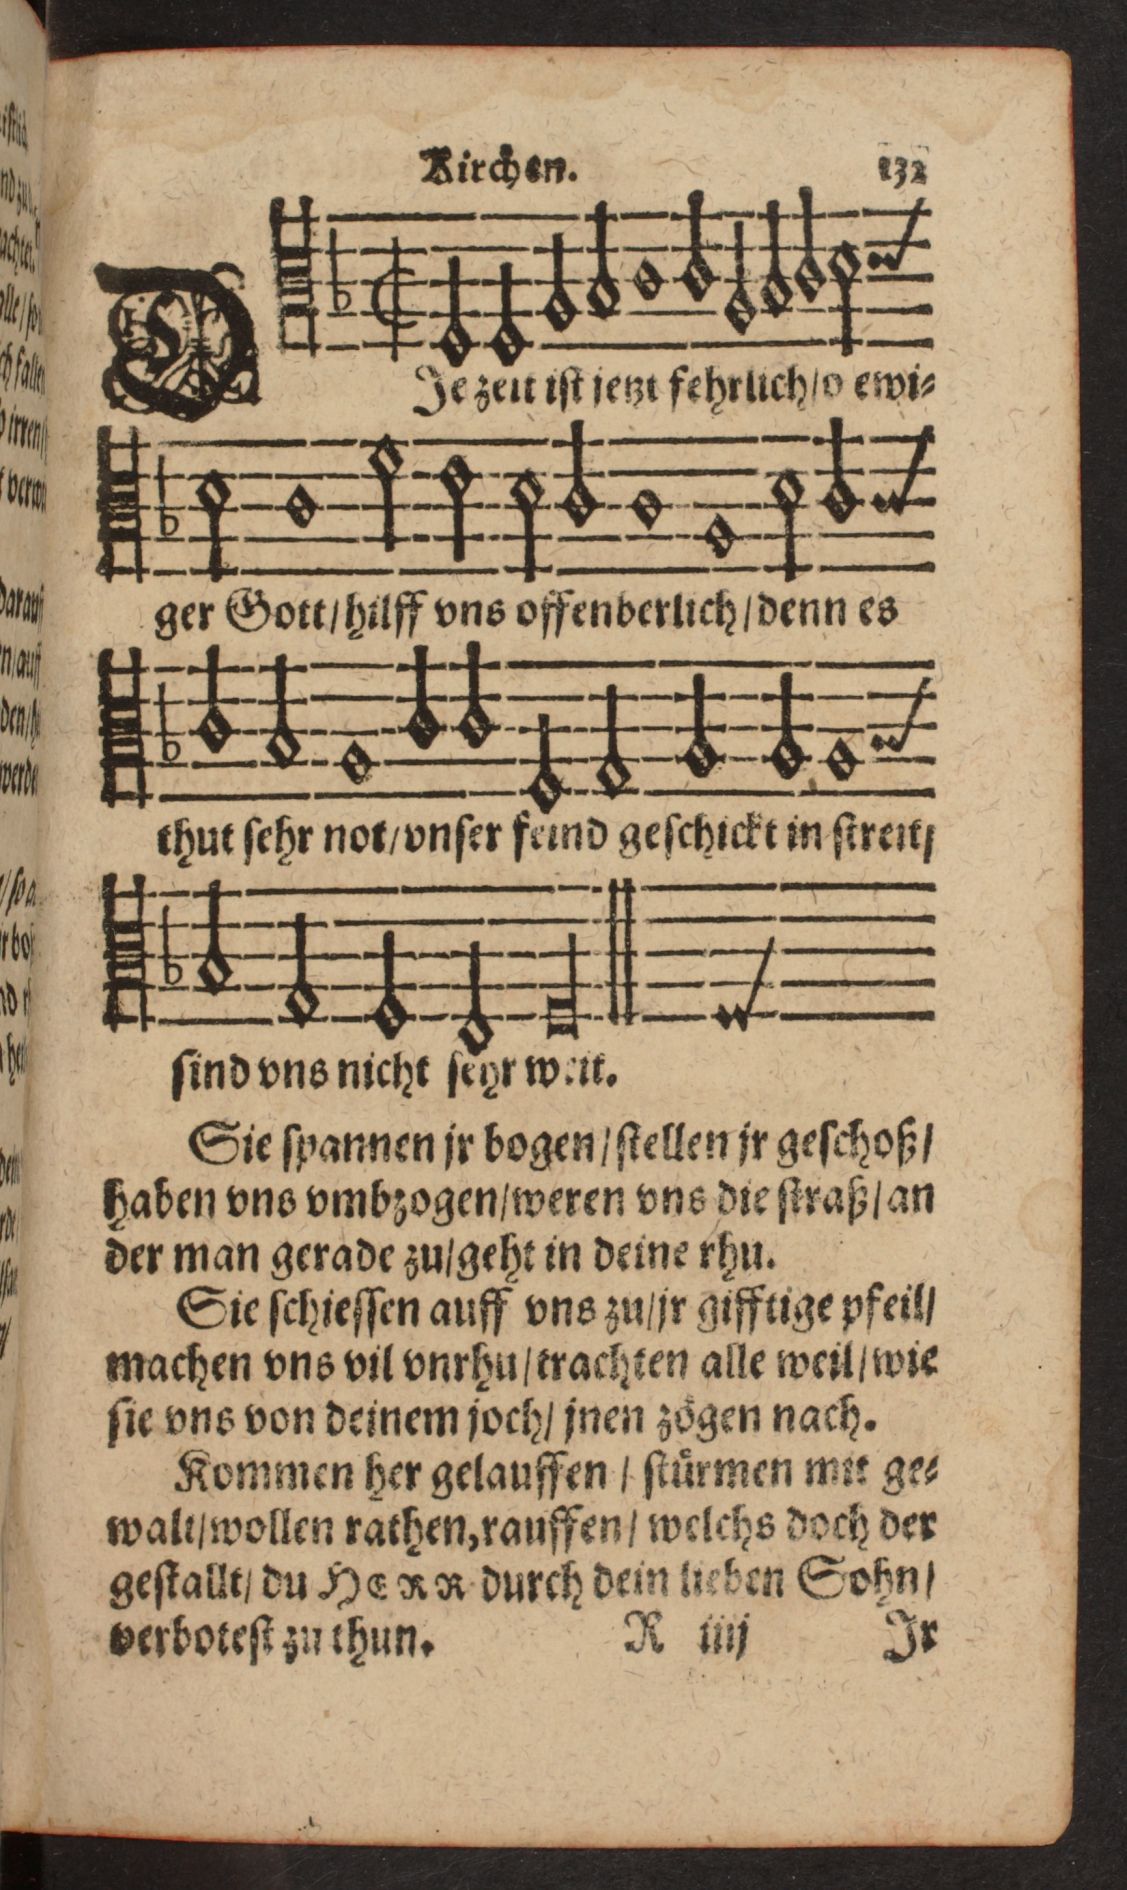 Kirchen. 132
DJe zeit ist jetzt fehrlich/o ewi⸗
ger Gott/hilff vns offenberlich/denn es
thut sehr not/vnser feind geschickt in streit/
sind vns nicht sehr weit.
Sie spannen jr bogen/stellen jr geschoß/
haben vns vmbzogen/weren vns die straß/an
der man gerade zu/geht in deine rhu.
Sie schiessen auff vns zu/jr gifftige pfeil/
machen vns vil vnrhu/trachten alle weil/wie
sie vns von deinem joch/ jnen zögen nach.
Kommen her gelauffen / stürmen mit ge⸗
walt/wollen rathen,rauffen/ welchs doch der
gestallt/ du HERR durch dein lieben Sohn/
verbotest zu thun. R iiij Jr